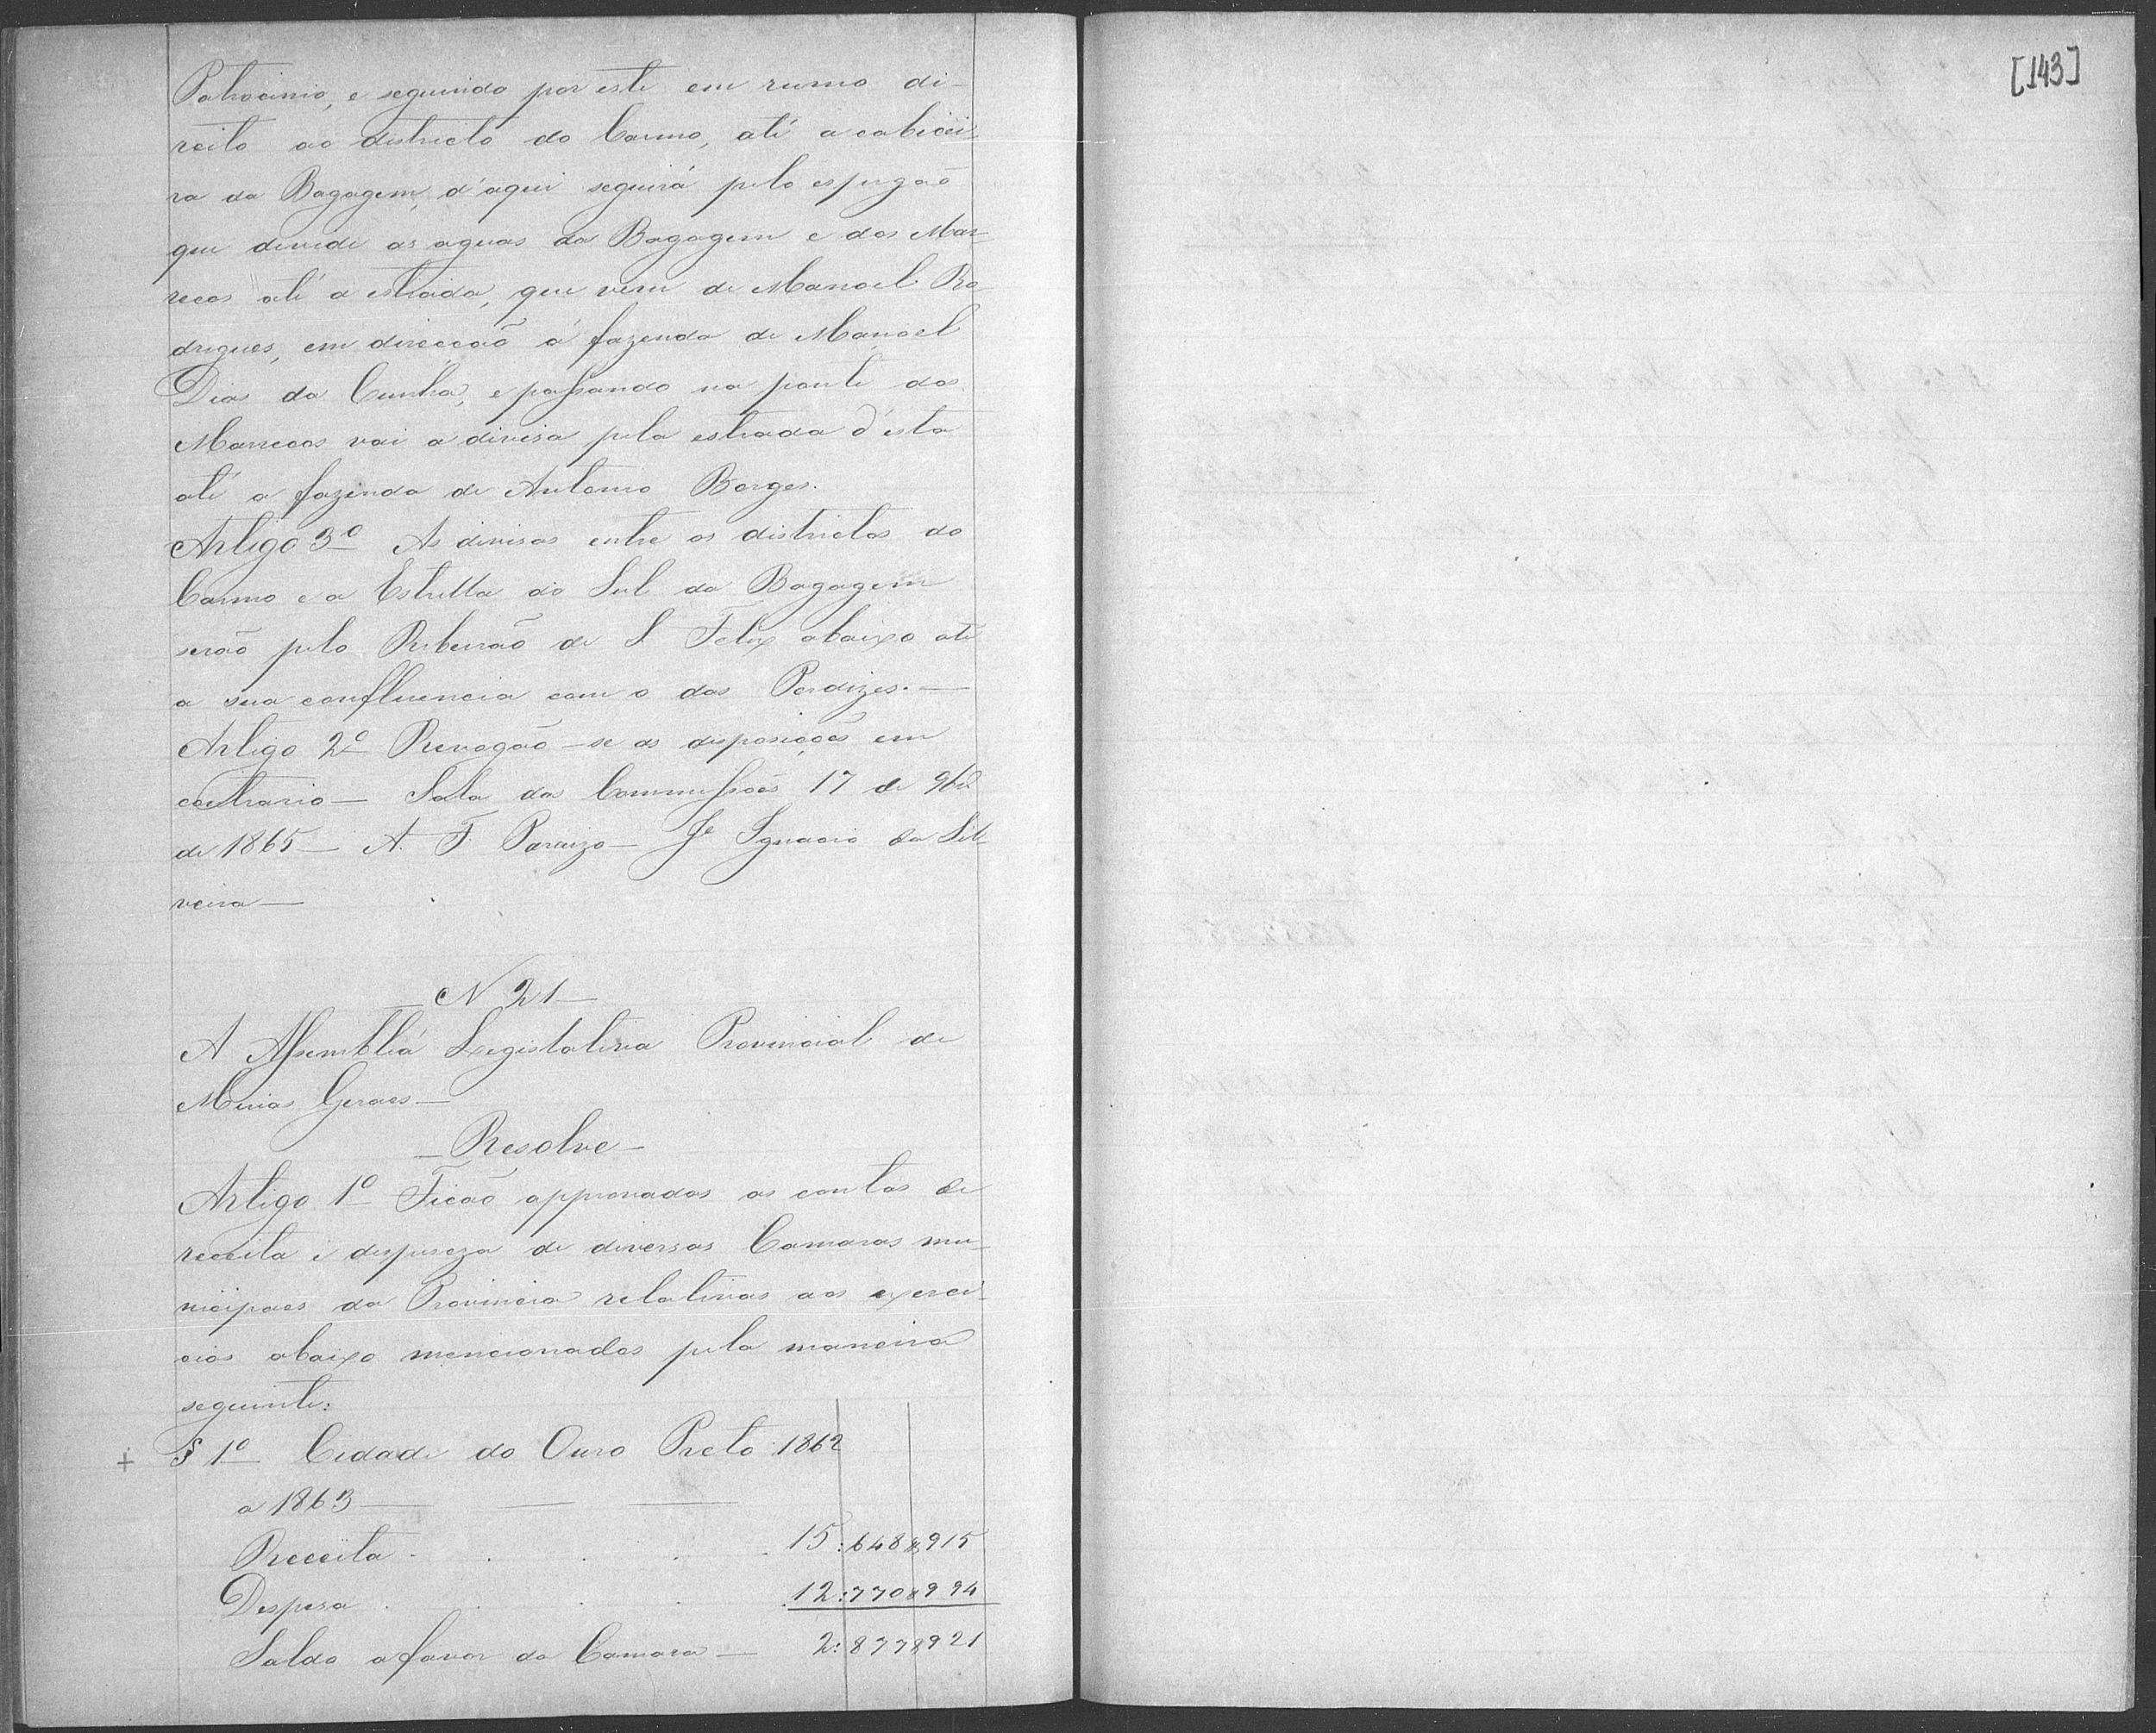 [143]
Patrocinio, e seguindo por este em rumo di-
reito ao districto do Carmo, até a cabicei-
ra da Bagagem, d'aqui seguirá pelo espigaõ
que devide as aguas da Bagagem e dos Mar-
recos até a estrada, que vem de Manoel Ro-
drigues, em direcçaõ á fazenda de Manoel
Dias da Cunha, e passando na ponte dos
Marrecos vai a divisa pela estrada d'esta
até a fazenda de Antonio Borges.
Artigo 3º As divisas entre os districtos do
Carmo e a Estrella do Sul da Bagagem
seraõ pelo Ribeiraõ de S Felix abaixo até
a sua confluencia com o das Perdizes. —
Artigo 2º Revogaõ-se as disposições em
contrario — Sala das Commissões 17 de 9bro
de 1865 — A. F. Paraizo — Je Ignacio da Sil-
veira —
— N 21 —
A Assembléa Legislativa Provincial de
Minas Geraes —
— Resolve —
Artigo 1º Ficaõ approvadas as contas de
receita e despeza de diversas Camaras mu-
nicipaes da Provincia relativas aos exerci-
cios abaixo mencionados pela maneira
seguinte:
+ § 1º Cidade do Ouro Preto 1862
a 1863 — — —
Receita . . . . . 15:648$915
Despesa . . . . 12:770$994
Saldo a favor da Camara — 2:877$921